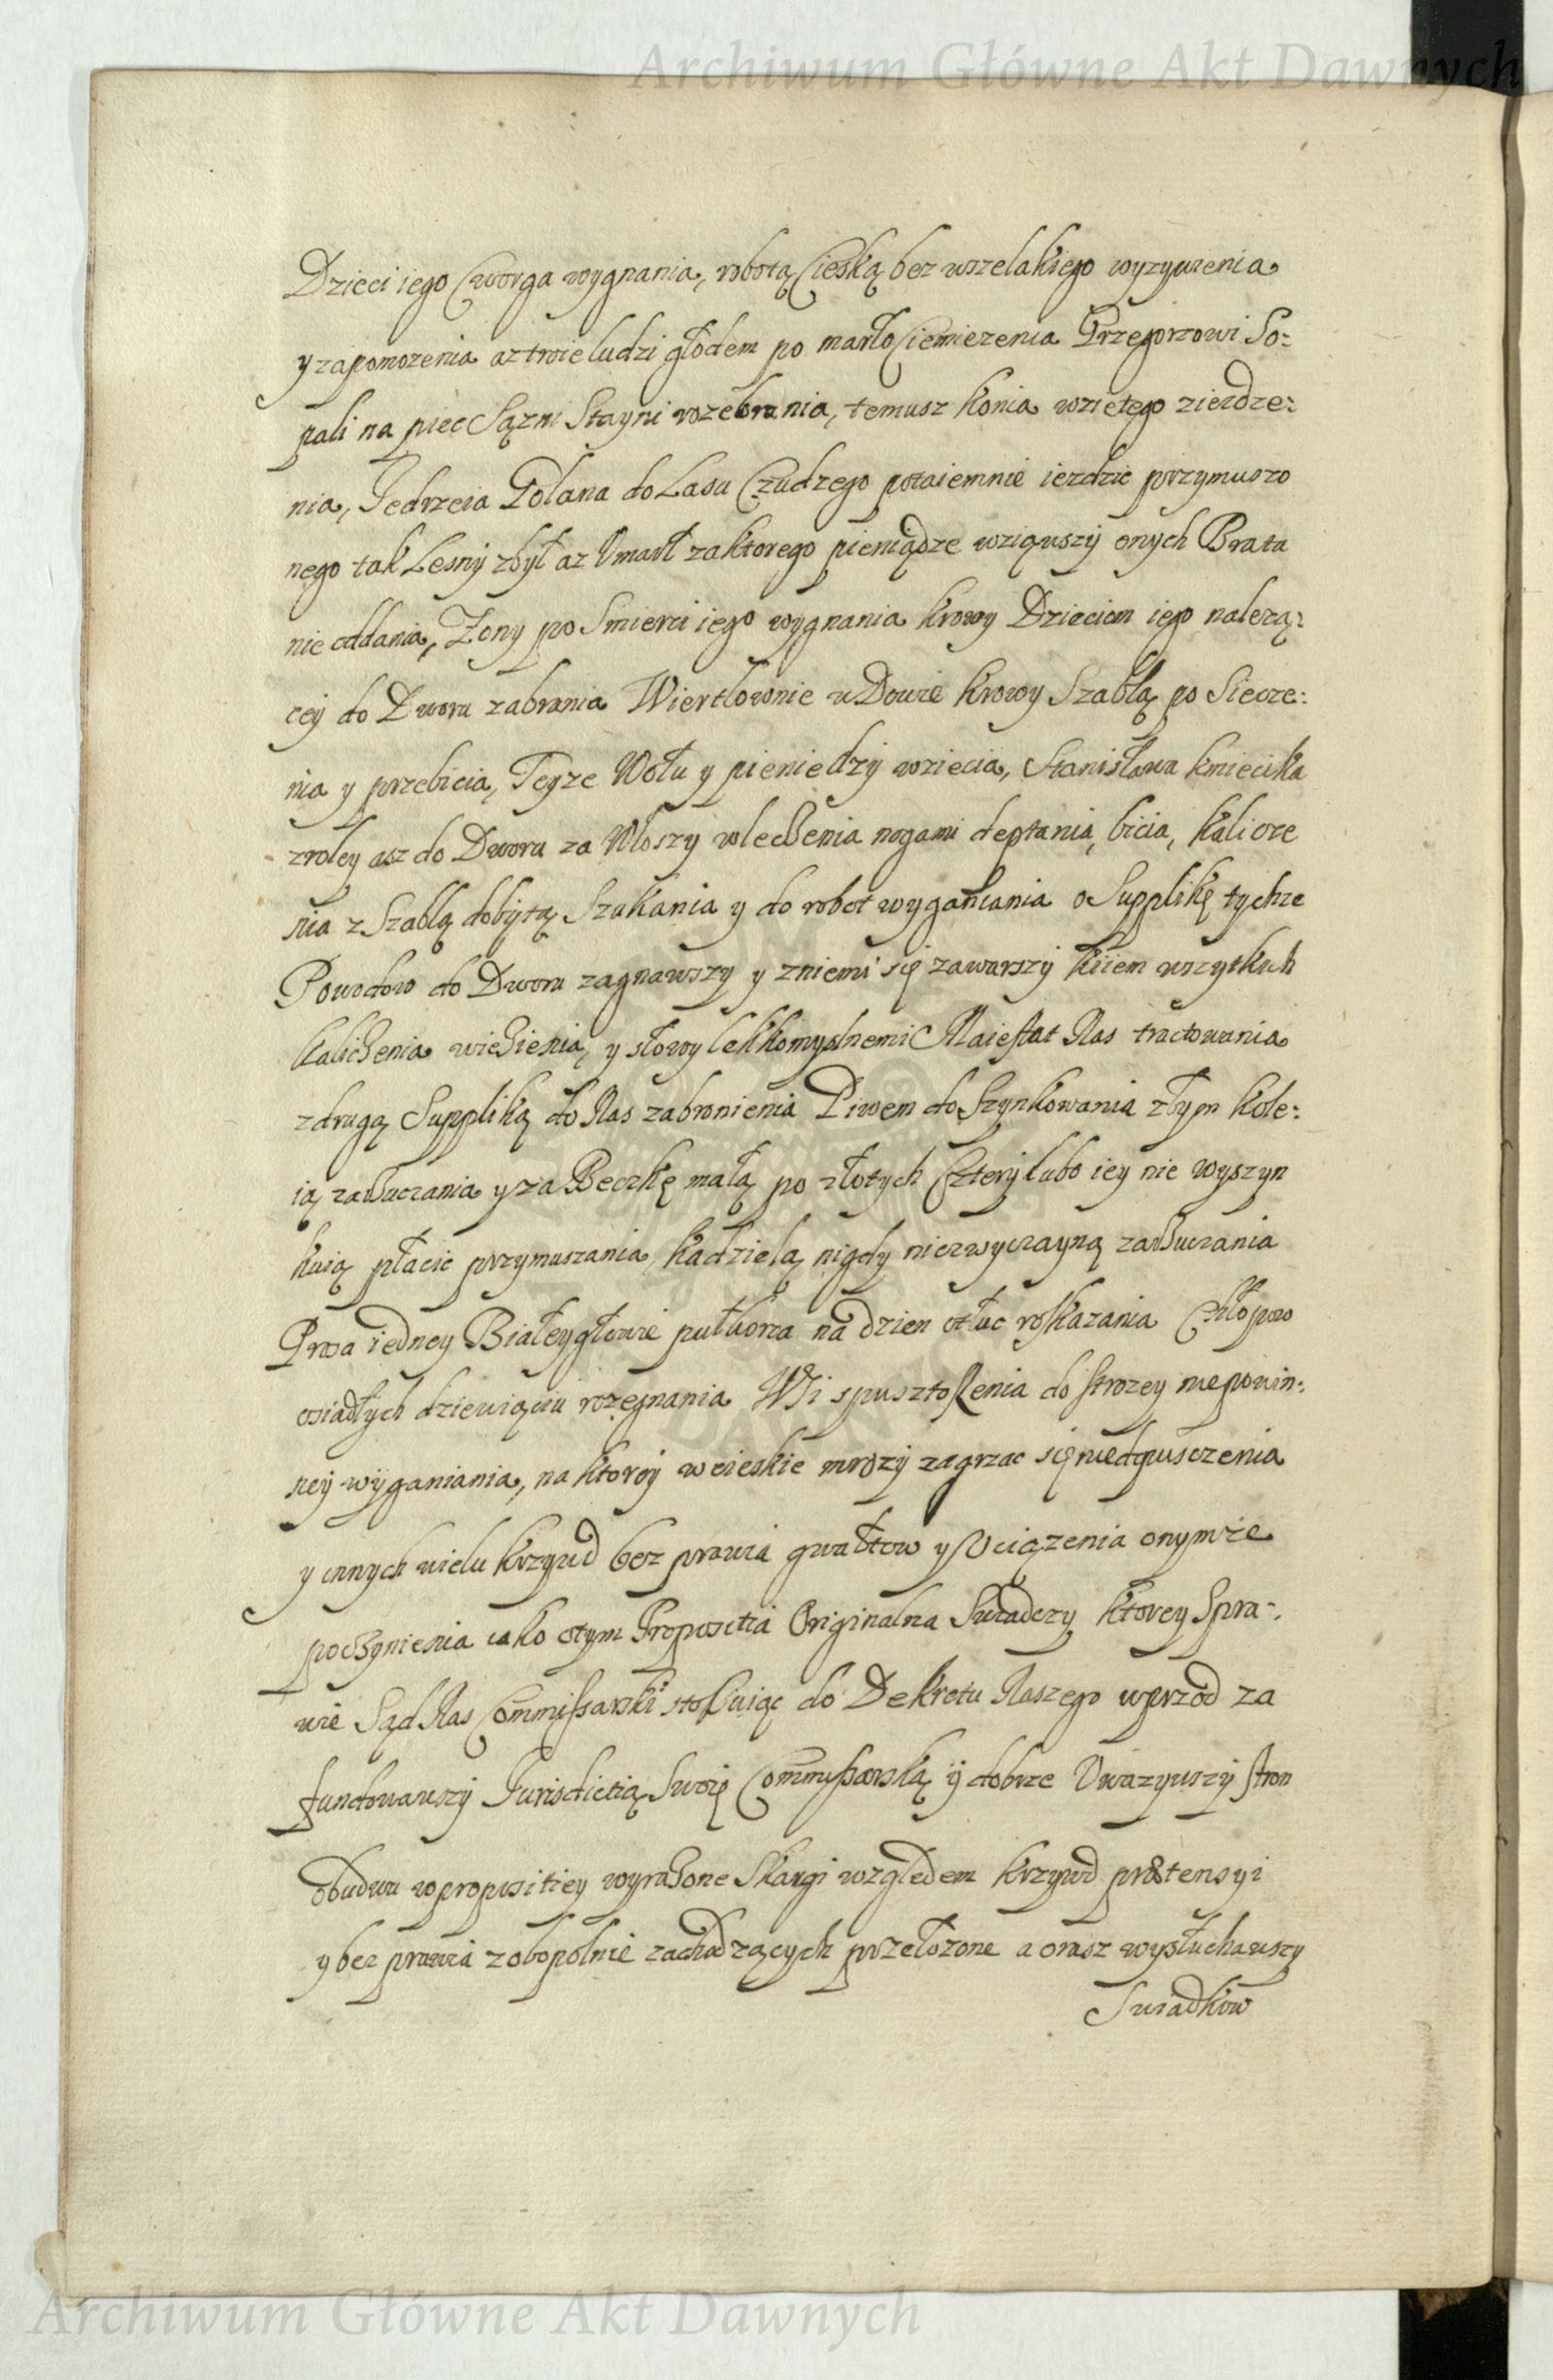 Archiwum Główne Akt Dawnych
Dzieci iego Czworga wygnania, robotą Cieską bez wszelakiego wyzywienia
y zapomozenia az troie ludzi głodem po marło Ciemiezenia Grzegorzowi So:
pali na piec Sązni Stayni rozebrania, temusz konia wzietego zieżdze:
nia, Jedrzeia Golana do Lasu Czudzego potaiemnie iezdzic przymuszo
nego tak Lesny zbył az Umarł za ktorego pieniądze wziąwszy onych Brata
nie oddania, Zony po Smierci iego wygnania krowy Dzieciom iego nalezą:
cey do Dworu zabrania Wiertlownie wDowie krowy Szablą po Siecze:
nia y przebicia, Teyze Wołu y pieniedzy wziecia, Stanisława kmiecika
zroley asz do Dworu za Włoszy wleczenia nogami deptania, bicia, kalicze
nia z Szablą dobytą Szukania y do robot wyganiania o Supplikę tychze
Powodow do Dworu zagnawszy y zniemi się zawarszy kiiem wszytkich
kaliczenia wiezienia, y słowy lekkomyslnemi Maiestat Nas tractowania
z drugą Suppliką do Nas zabronienia Piwem do Szynkowania złym kole:
ią zawluczania y za Beczkę małą po złotych Cztery lubo iey nie wyszyn
kuią płacic przymuszania, kądzielą nigdy niezwyczayną zawluczania
Prosa iedney Białeygłowie pułkorca na dzien otłuc roskazania Chłopow
osiadłych dziewiąciu rozegnania Wsi spusztoszenia do strozey niepowin:
ney wyganiania, na ktorey w cieskie mrozy zagrzac się niedopusczenia
y innych wielu krzywd bez prawia gwałtow y Uciązenia onymze
poczynienia iako otym Propozitia Originalna Swiadczy ktorey Spra:
wie Sąd Nas Commissarski stosuiąc do Dekretu Naszego wprzod za
fundowawszy Jurisdictią Swoię Commissarską y dobrze Uwazywszy stron
obudwu w propozitiey wyrazone Skargi względem krzywd prætensyi
y bez prawia z obopolnie zachodzących przełozone a oraz wysłuchawszy
Swiadkow
Archiwum Główne Akt Dawnych